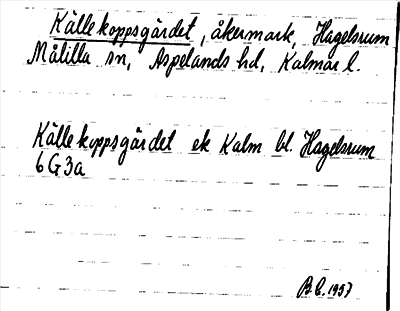 Källekoppsgärdet, åkermark, Hagelsrum
Målilla sn, Aspelands hd, Kalmar l.
Källekoppsgärdet ek Kalm bl. Hagelsrum
6G3a
B.E. 1957